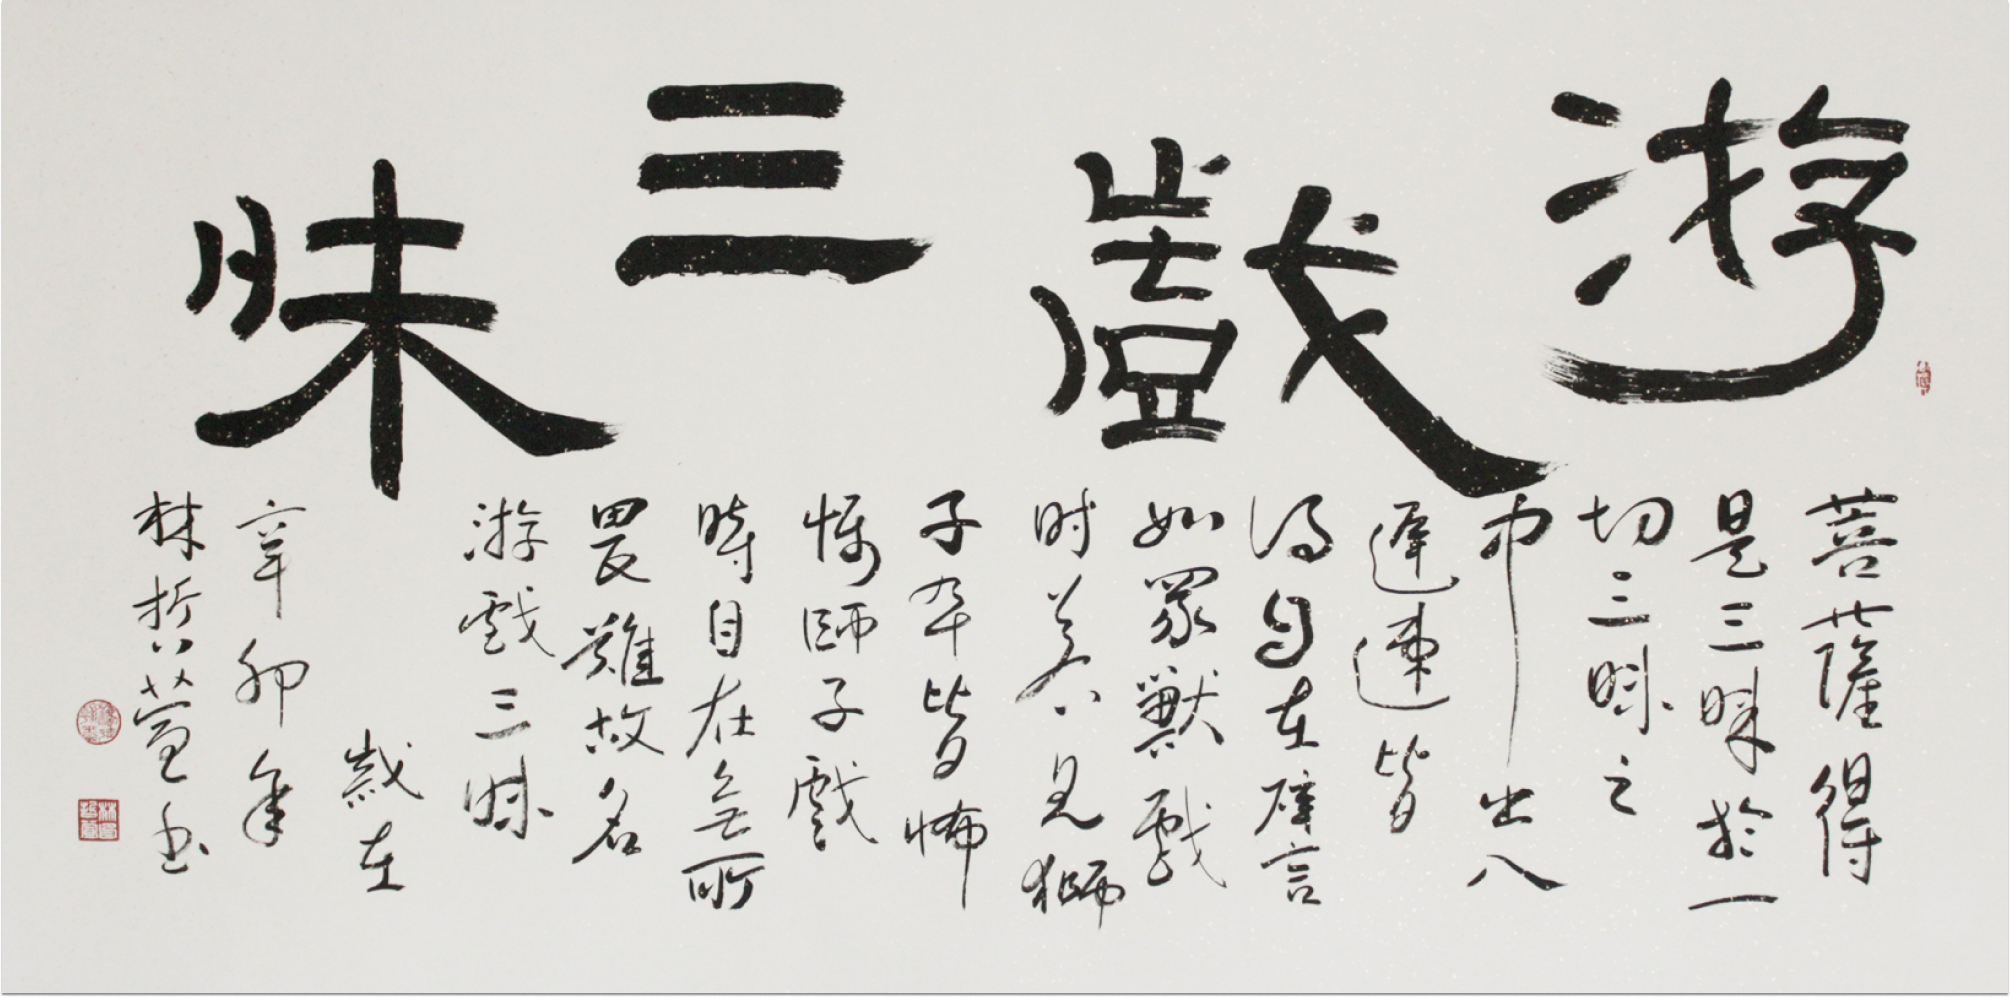 游戲三昧
菩薩得
是三昧於一
切三昧之
中出入
遲速皆
得自在譬
如眾獸戲
时若見獅
子率皆怖
懼師子戲
時自在無所
畏難故名
游戲三昧
歲在
辛卯年
林哲萱书